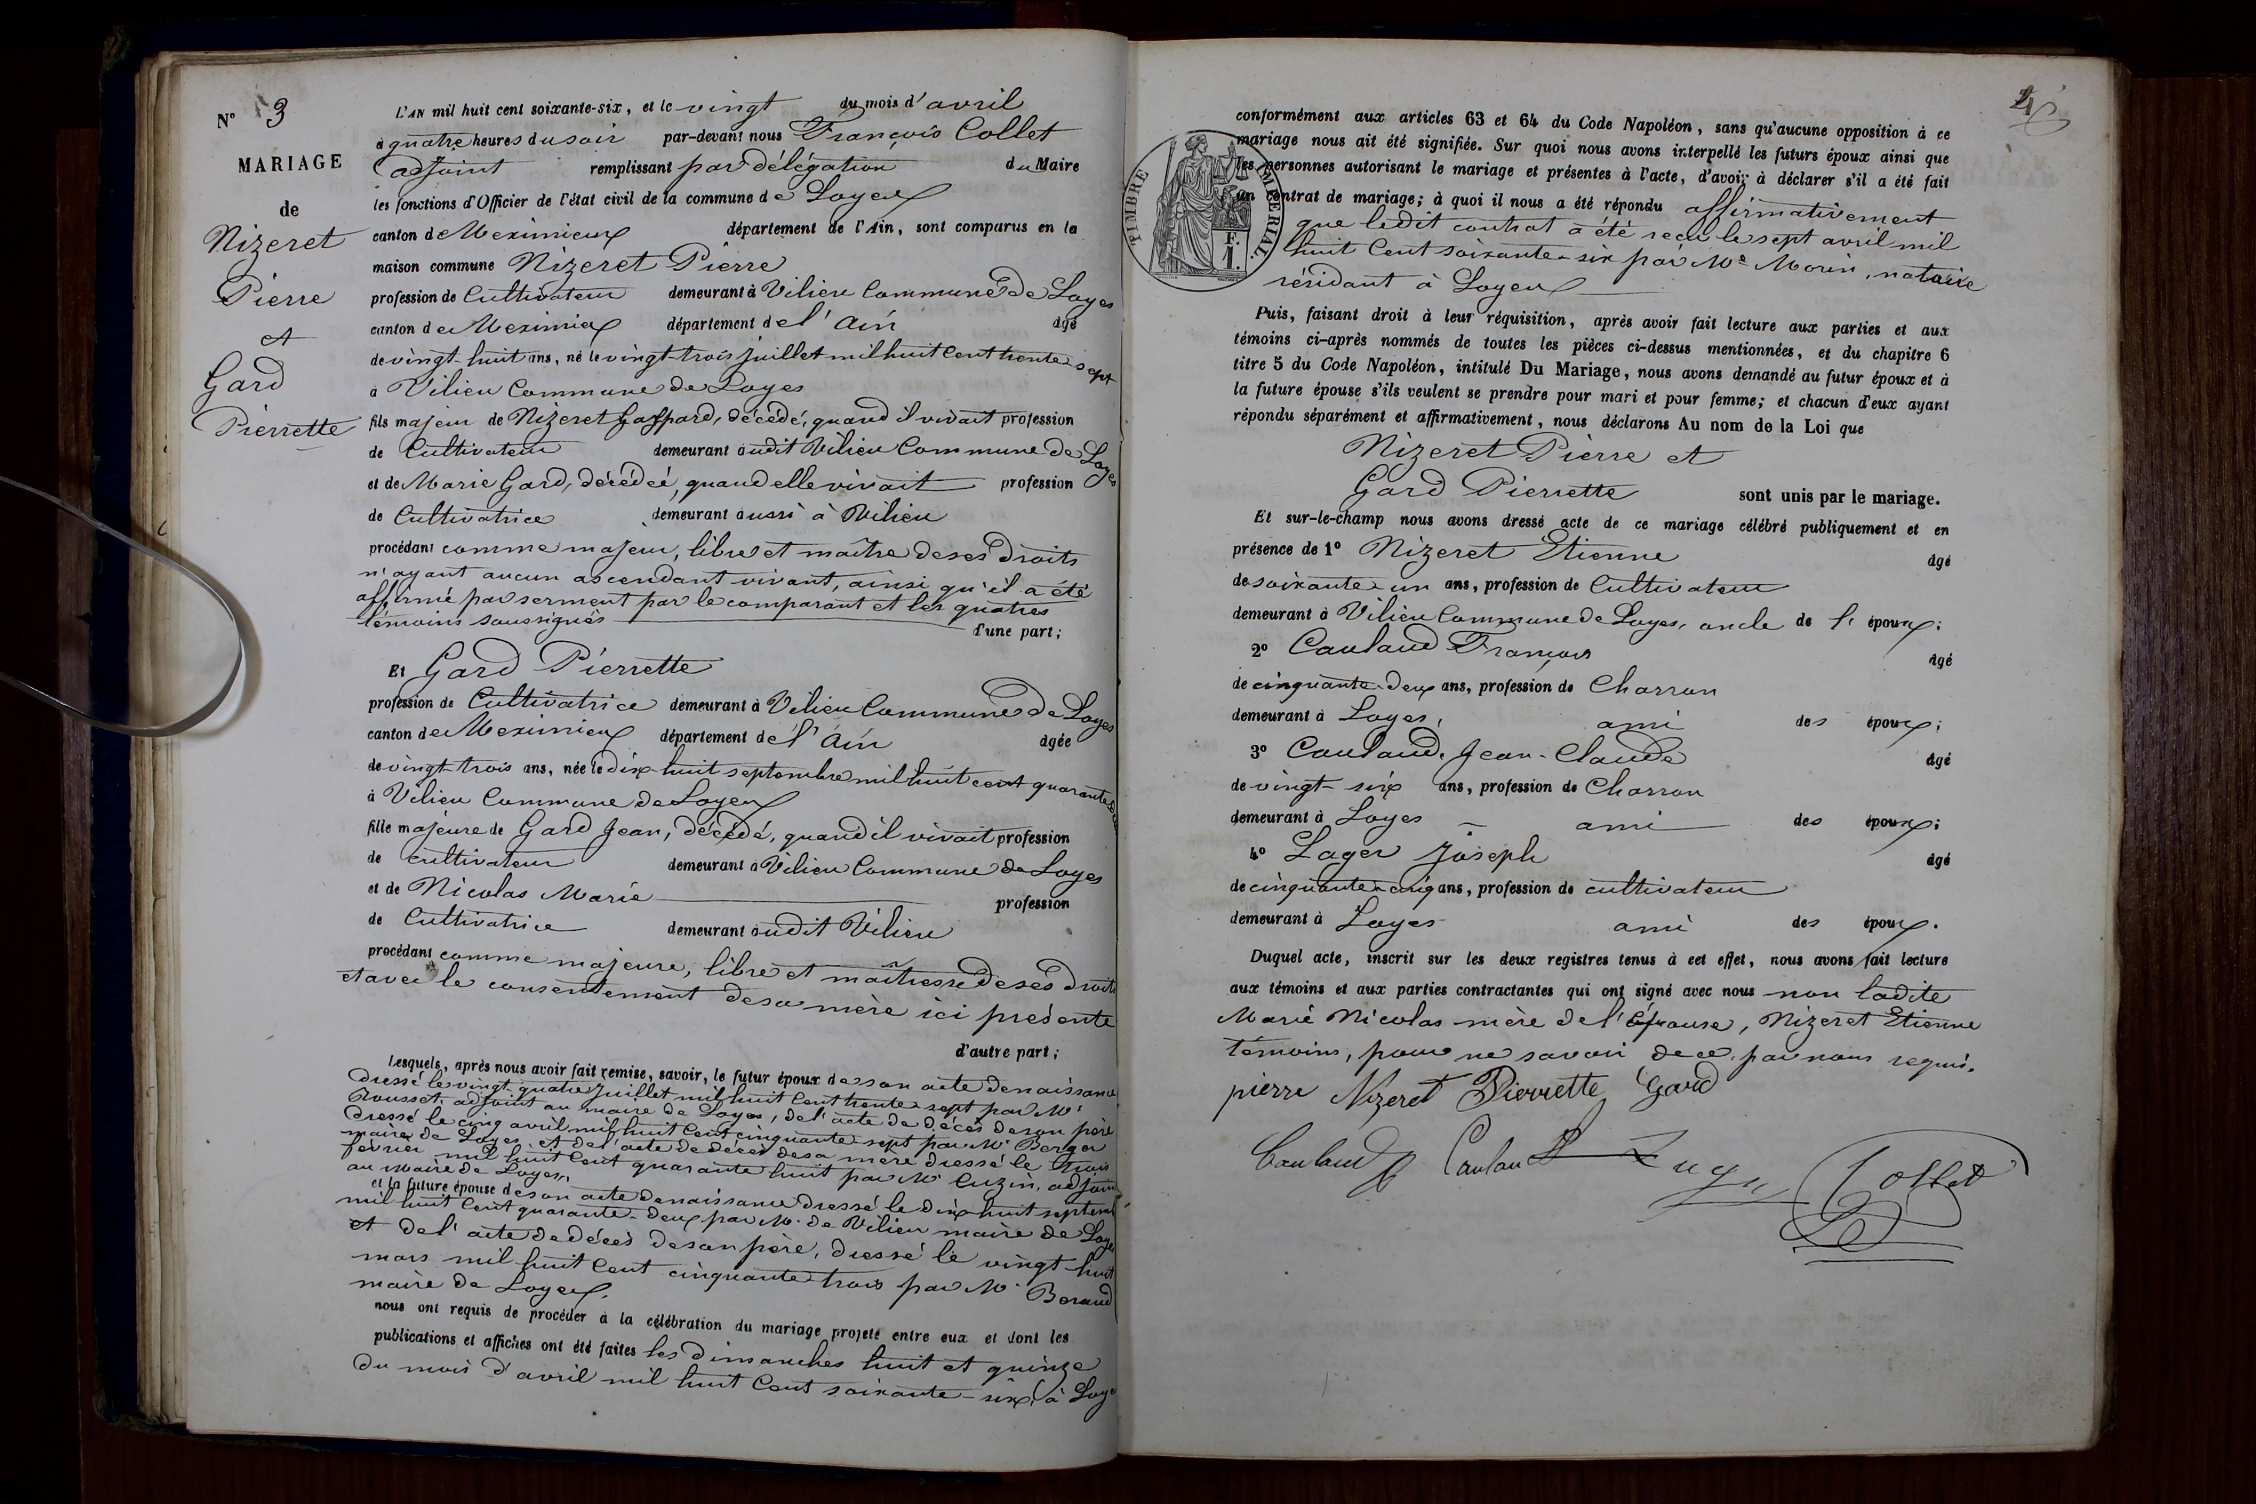 N° 3
MARIAGE
de
Nizeret
Pierre
et
Gard
Pierrette
L'AN mil huit cent soixante-six, et le vingt du mois d'avril
à quatre heures du soir par-devant nous François Collet
adjoint remplissant par délégation du Maire
les fonctions d'Officier de l'état civil de la commune de Loyes
canton de Meximieux département de l'Ain, sont comparus en la
maison commune Nizeret Pierre
profession de Cultivateur demeurant à Vilieu Commune de Loyes
canton de Meximieux département de l'Ain âgé
de vingt-huit ans, né le vingt-trois juillet mil huit cent trente sept
à Vilieu Commune de Loyes
fils majeur de Nizeret Gaspard, décédé, quand il vivait profession
de Cultivateur demeurant audit Vilieu Commune de Loyes
et de Marie Gard, décédée, quand elle vivait profession
de Cultivatrice demeurant aussi à Vilieu
procédant comme majeur, libre et maître de ses droits
n'ayant aucun ascendant vivant, ainsi qu'il a été
affirmé par serment par le comparant et les quatres
témoins soussignés d'une part;
Et Gard Pierrette
profession de Cultivatrice demeurant à Vilieu Commune de Loyes
canton de Meximieux département de l'Ain âgée
de vingt-trois ans, née le dix-huit septembre mil huit cent quarante
à Vilieu Commune de Loyes
fille majeure de Gard Jean, décédé, quand il vivait profession
de cultivateur demeurant à Vilieu Commune de Loyes
et de Nicolas Marie profession
de Cultivatrice demeurant audit Vilieu
procédant comme majeure, libre et maîtresse de ses droits
et avec le consentement de sa mère ici présente
d'autre part;
Lesquels, après nous avoir fait remise, savoir, le futur époux de son acte de naissance
dressé le vingt-quatre juillet mil huit cent trente-sept par Mr
Rousset, adjoint au maire de Loyes, de l'acte de décès de son père
dressé le cinq avril mil huit cent cinquante sept par Mr Berger
maire de Loyes et de l'acte de décès de sa mère dressé le trois
février mil huit cent quarante huit par Mr Cuzin, adjoint
au Maire de Loyes,
et la future épouse de son acte de naissance dressé le dix-huit septemb
mil huit cent quarante-deux par Mr de Vilieu maire de Loyes
et de l'acte de décès de son père, dressé le vingt-huit
mars mil huit cent cinquante trois par Mr Beraud
maire de Loyes.
nous ont requis de procéder à la célébration du mariage projeté entre eux et dont les
publications et affiches ont été faites les dimanches huit et quinze
du mois d'avril mil huit cent soixante-six, à Loyes
conformément aux articles 63 et 64 du Code Napoléon, sans qu'aucune opposition à ce
mariage nous ait été signifiée. Sur quoi nous avons interpellé les futurs époux ainsi que
les personnes autorisant le mariage et présentes à l'acte, d'avoir à déclarer s'il a été fait
un contrat de mariage; à quoi il nous a été répondu affirmativement
que ledit contrat a été reçu le sept avril mil
huit cent soixante-six par Me Morin, notaire
résidant à Loyes
TIMBRE IMPÉRIAL
F.
1.
Puis, faisant droit à leur réquisition, après avoir fait lecture aux parties et aux
témoins ci-après nommés de toutes les pièces ci-dessus mentionnées, et du chapitre 6
titre 5 du Code Napoléon, intitulé Du Mariage, nous avons demandé au futur époux et à
la future épouse s'ils veulent se prendre pour mari et pour femme; et chacun d'eux ayant
répondu séparément et affirmativement, nous déclarons Au nom de la Loi que
Nizeret Pierre et
Gard Pierrette sont unis par le mariage.
Et sur-le-champ nous avons dressé acte de ce mariage célébré publiquement et en
présence de 1° Nizeret Etienne âgé
de soixante-un ans, profession de Cultivateur
demeurant à Vilieu Commune de Loyes, oncle de l' époux;
2° Caulaud François âgé
de cinquante-deux ans, profession de Charron
demeurant à Loyes, ami des époux;
3° Caulaud, Jean-Claude âgé
de vingt-six ans, profession de Charron
demeurant à Loyes ami des époux;
4° Lager Joseph âgé
de cinquante-cinq ans, profession de cultivateur
demeurant à Loyes ami des époux.
Duquel acte, inscrit sur les deux registres tenus à cet effet, nous avons fait lecture
aux témoins et aux parties contractantes qui ont signé avec nous non ladite
Marie Nicolas mère de l'épouse, Nizeret Etienne
témoins, pour ne savoir de ce par nous requis.
pierre Nizeret Pierrette Gard
Caulaud Caulaud Collet